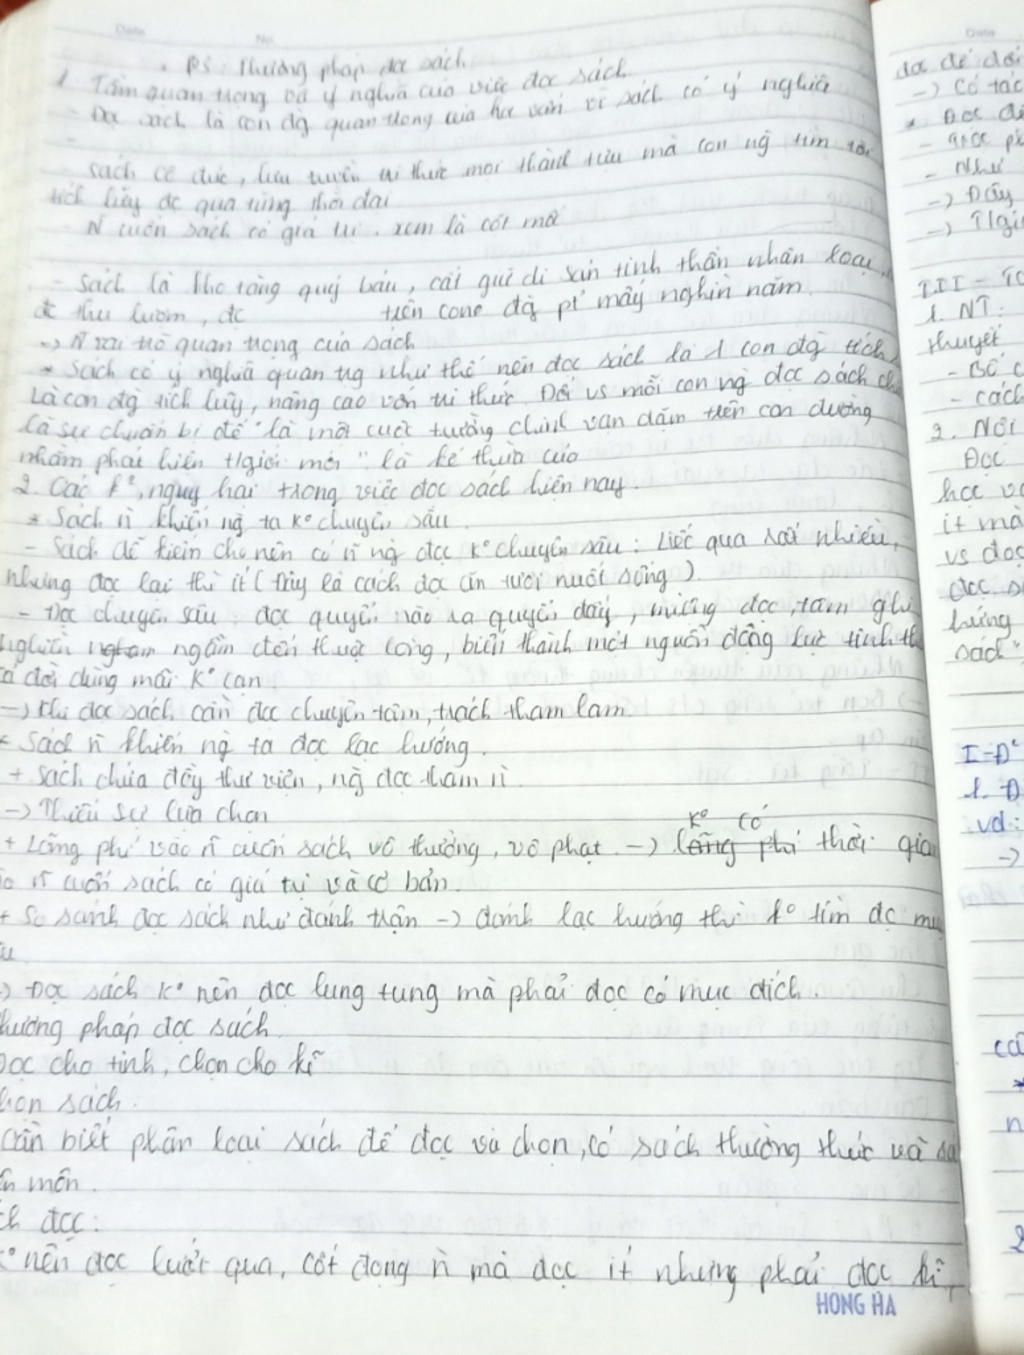 Phương pháp đọc sách
1. Tầm quan trọng và ý nghĩa của việc đọc sách
- Đọc sách là con đg quan trọng của học vấn vì sách có ý nghĩa
-
- sách đúc, lưu truyền tri thức mọi thành tựu mà con ng tìm tòi
tích lũy đc qua từng thời đại
- N cuốn sách có giá trị. xem là cột mố
- Sách là kho tàng quý báu, cất giữ di sản tinh thần nhân loại,
thu lượm, đc trên đg pt mấy nghìn năm
-> trò quan trọng của sách
* Sách có ý nghĩa quan ng như thế nên đọc sách là 1 con đg tích
Là con đg tích lũy, nâng cao vốn tri thức. Đối vs mỗi con ng đọc sách
là sự chuẩn bị để là một cuộc trường chinh vạn dặm trên con đường
nhằm phát hiện t/giới mới" là kế thừa của
2. Các k², nguy hại trong việc đọc sách hiện nay.
* Sách n khiến ng ta k° chuyên sâu
- Sách dễ kiếm cho nên có n ng đọc k° chuyên sâu: Liếc qua rất nhiều,
nhưng đọng lại thì ít ( đây là cách đọc ăn tươi nuốt sống ).
- Đọc chuyên sâu đọc quyển nào ra quyển đấy, miệng đọc, tâm ghi
nghiền ngẫm đến thuộc lòng, biến thành một nguồn động lực tinh th
đời dùng mãi k° cạn
=> Khi đọc sách cần đọc chuyên tâm, trách tham lam.
* Sách n khiến ng ta đọc lạc hướng.
+ Sách chứa đầy thư viện, ng đọc tham n
-> Thiếu sự lựa chọn
k° có
+ Lãng phí vào n cuốn sách vô thưởng, vô phạt -> lãng phí thời gian
n cuốn sách có giá trị và cơ bản.
+ So sánh đọc sách như đánh trận -> đánh lạc hướng thì k° tìm đc mụ
> Đọc sách k° nên đọc lung tung mà phải đọc có mục đích.
hương pháp đọc sách
ọc cho tinh, chọn cho kĩ
họn sách.
cần biết phân loại sách để đọc và chọn, có sách thường thức và
n môn.
ch đọc:
k° nên đọc lướt qua, cốt đọng n mà đọc ít nhưng phải đọc kĩ,
HONG HA
đọc để đời
-> Có tác
- Như
-> Đây
-> T/giới
III - Tổ
1. NT:
thuyết
- Bố c
- cách
2. Nội
Đọc
học v
ít mà
vs đọc
đọc s
hứng
sách"
I - Đ
1. Đ
vd:
->
*
n
2